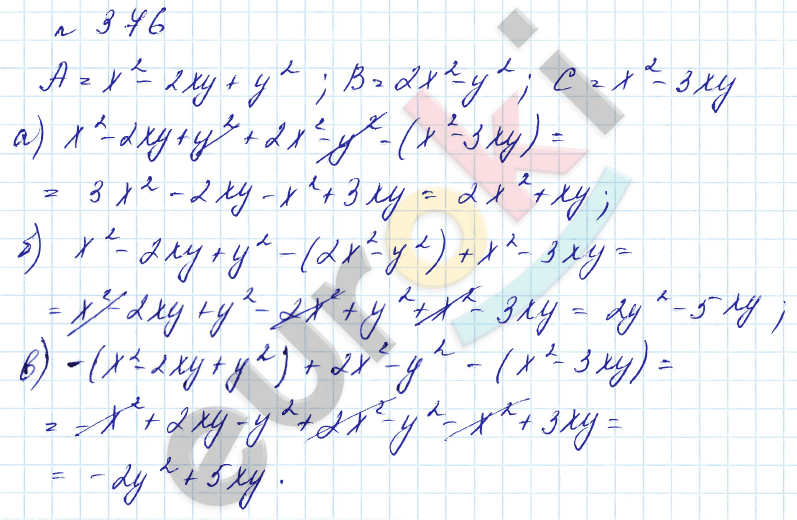 № 376
A = x² - 2xy + y² ; B = 2x² - y² ; C = x² - 3xy
а) x² - 2xy + y² + 2x² - y² - (x² - 3xy) =
= 3x² - 2xy - x² + 3xy = 2x² + xy ;
б) x² - 2xy + y² - (2x² - y²) + x² - 3xy =
= x² - 2xy + y² - 2x² + y² + x² - 3xy = 2y² - 5xy ;
в) -(x² - 2xy + y²) + 2x² - y² - (x² - 3xy) =
= -x² + 2xy - y² + 2x² - y² - x² + 3xy =
= -2y² + 5xy .
euroki